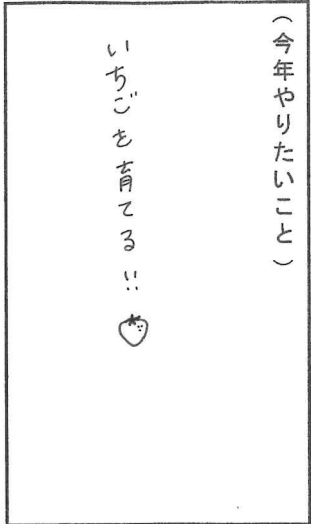 （今年やりたいこと）
いちごを育てる!!